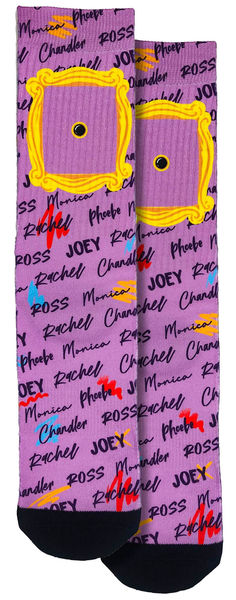 Phoebe
Monica
Chandler
JOEY
ROSS
ROSS
Rachel
JOEY
Monica
Phoebe
Rachel
Rachel
ROSS
JOEY
Rachel
Chandler
ROSS
Monica
Phoebe
Rachel
Chandler
Phoebe
Monica
JOEY
Rachel
JOEY
Phoebe
ROSS
Monica
Chandler
Chandler
Rachel
JOEY
Rachel
Chandler
ROSS
JOEY
Monica
Phoebe
Rachel
ROSS